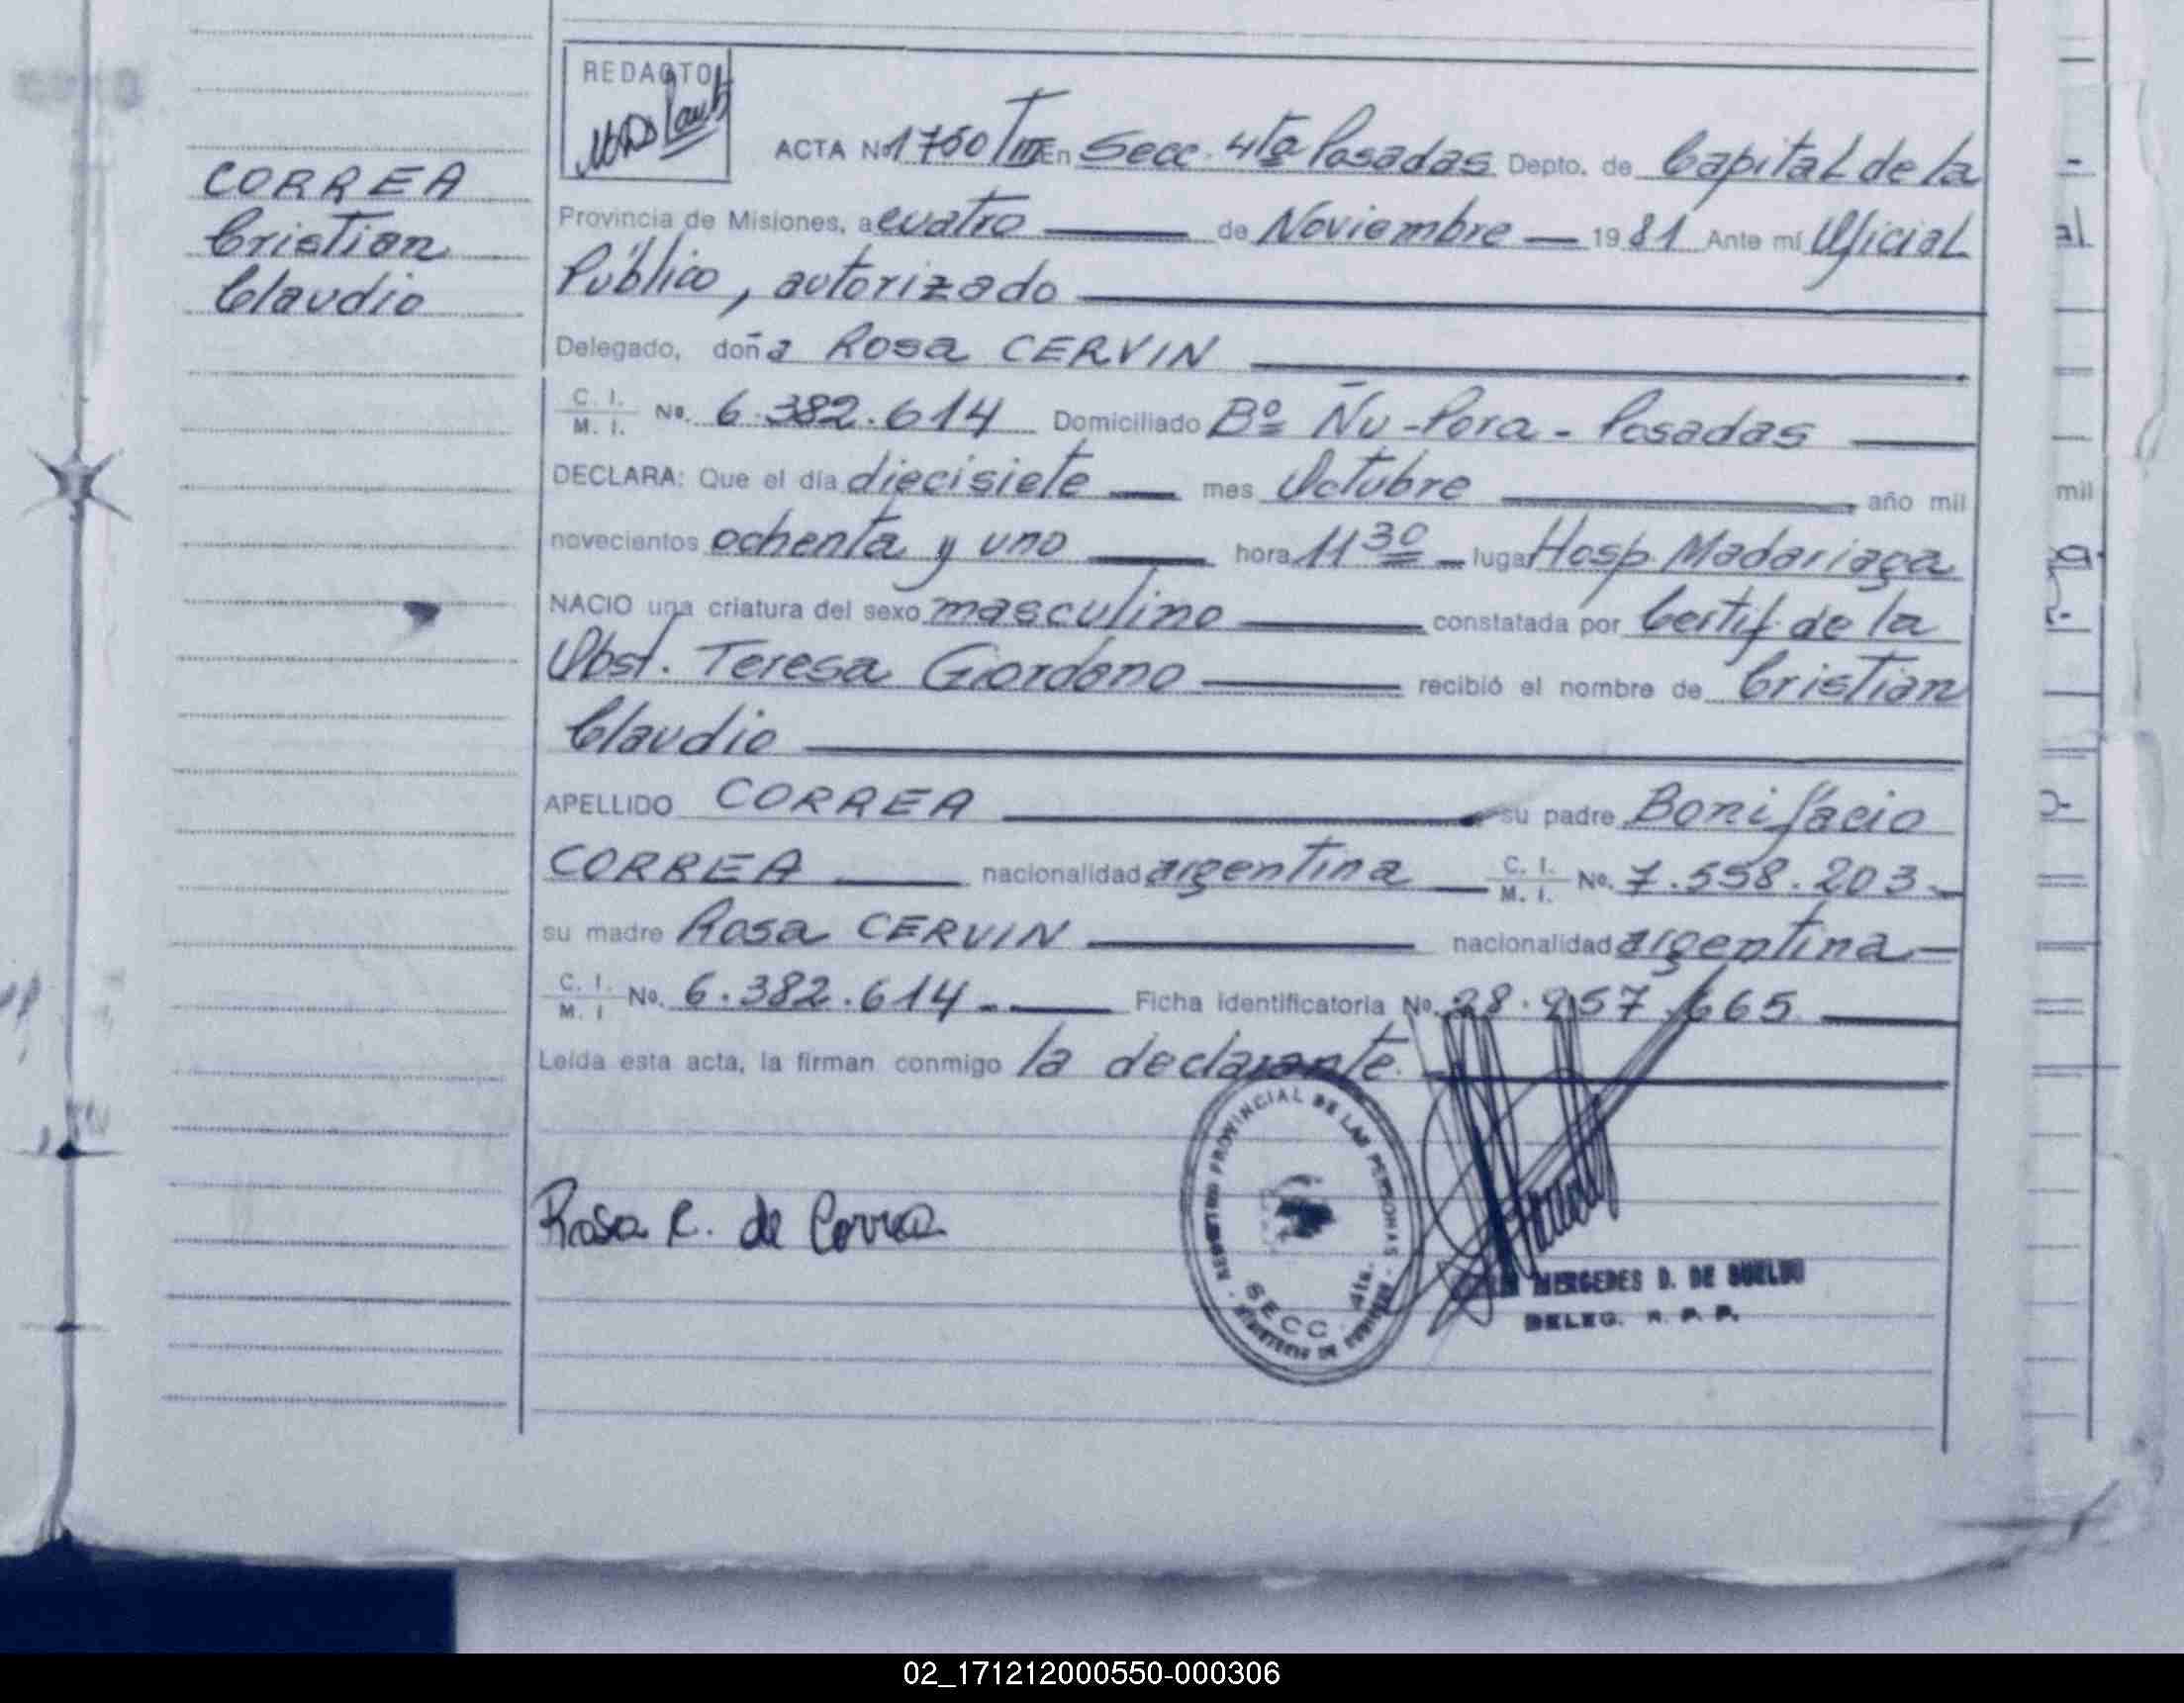 REDACTOR
CORREA
Cristian
Claudio
ACTA Nº 1760 T III En Secc. 4ta Posadas Depto. de Capital de la
Provincia de Misiones, a cuatro de Noviembre 1981 Ante mí Oficial
Público, autorizado
Delegado, doña Rosa CERVIN
C. I. M. I. No. 6.382.614 Domiciliado Bº Ñu-Pora - Posadas
DECLARA: Que el día diecisiete mes Octubre año mil
novecientos ochenta y uno hora 11 30 lugar Hosp. Madariaga
NACIO una criatura del sexo masculino constatada por Certif. de la
Obst. Teresa Giordano recibió el nombre de Cristian
Claudio
APELLIDO CORREA su padre Bonifacio
CORREA nacionalidad argentina C. I. M. I. No. 7.558.203
su madre Rosa CERVIN nacionalidad argentina
C. I. M. I No. 6.382.614 Ficha identificatoria No. 28.957.665
Leída esta acta, la firman conmigo la declarante.
Rosa C. de Correa
REGISTRO PROVINCIAL DE LAS PERSONAS
SECC. 4ta.
MINISTERIO DE GOBIERNO
MERCEDES D. DE
DELEG. R. P. P.
mil
02_171212000550-000306